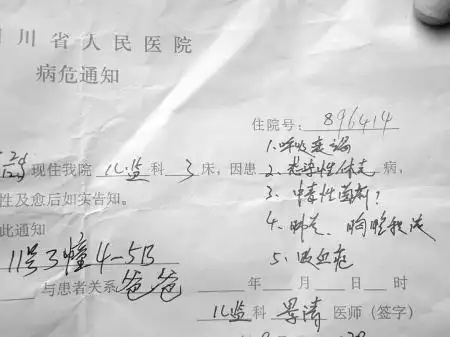 川省人民医院
病危通知
住院号：896414
1.呼吸衰竭
现住我院儿监科3床，因患2.感染性休克病，
性及愈后如实告知。
3.中毒性菌痢？
此通知
4.肺炎、胸腔积液
11号3幢4-5B
5.败血症
与患者关系爸爸
年 月 日 时
儿监科 医师（签字）